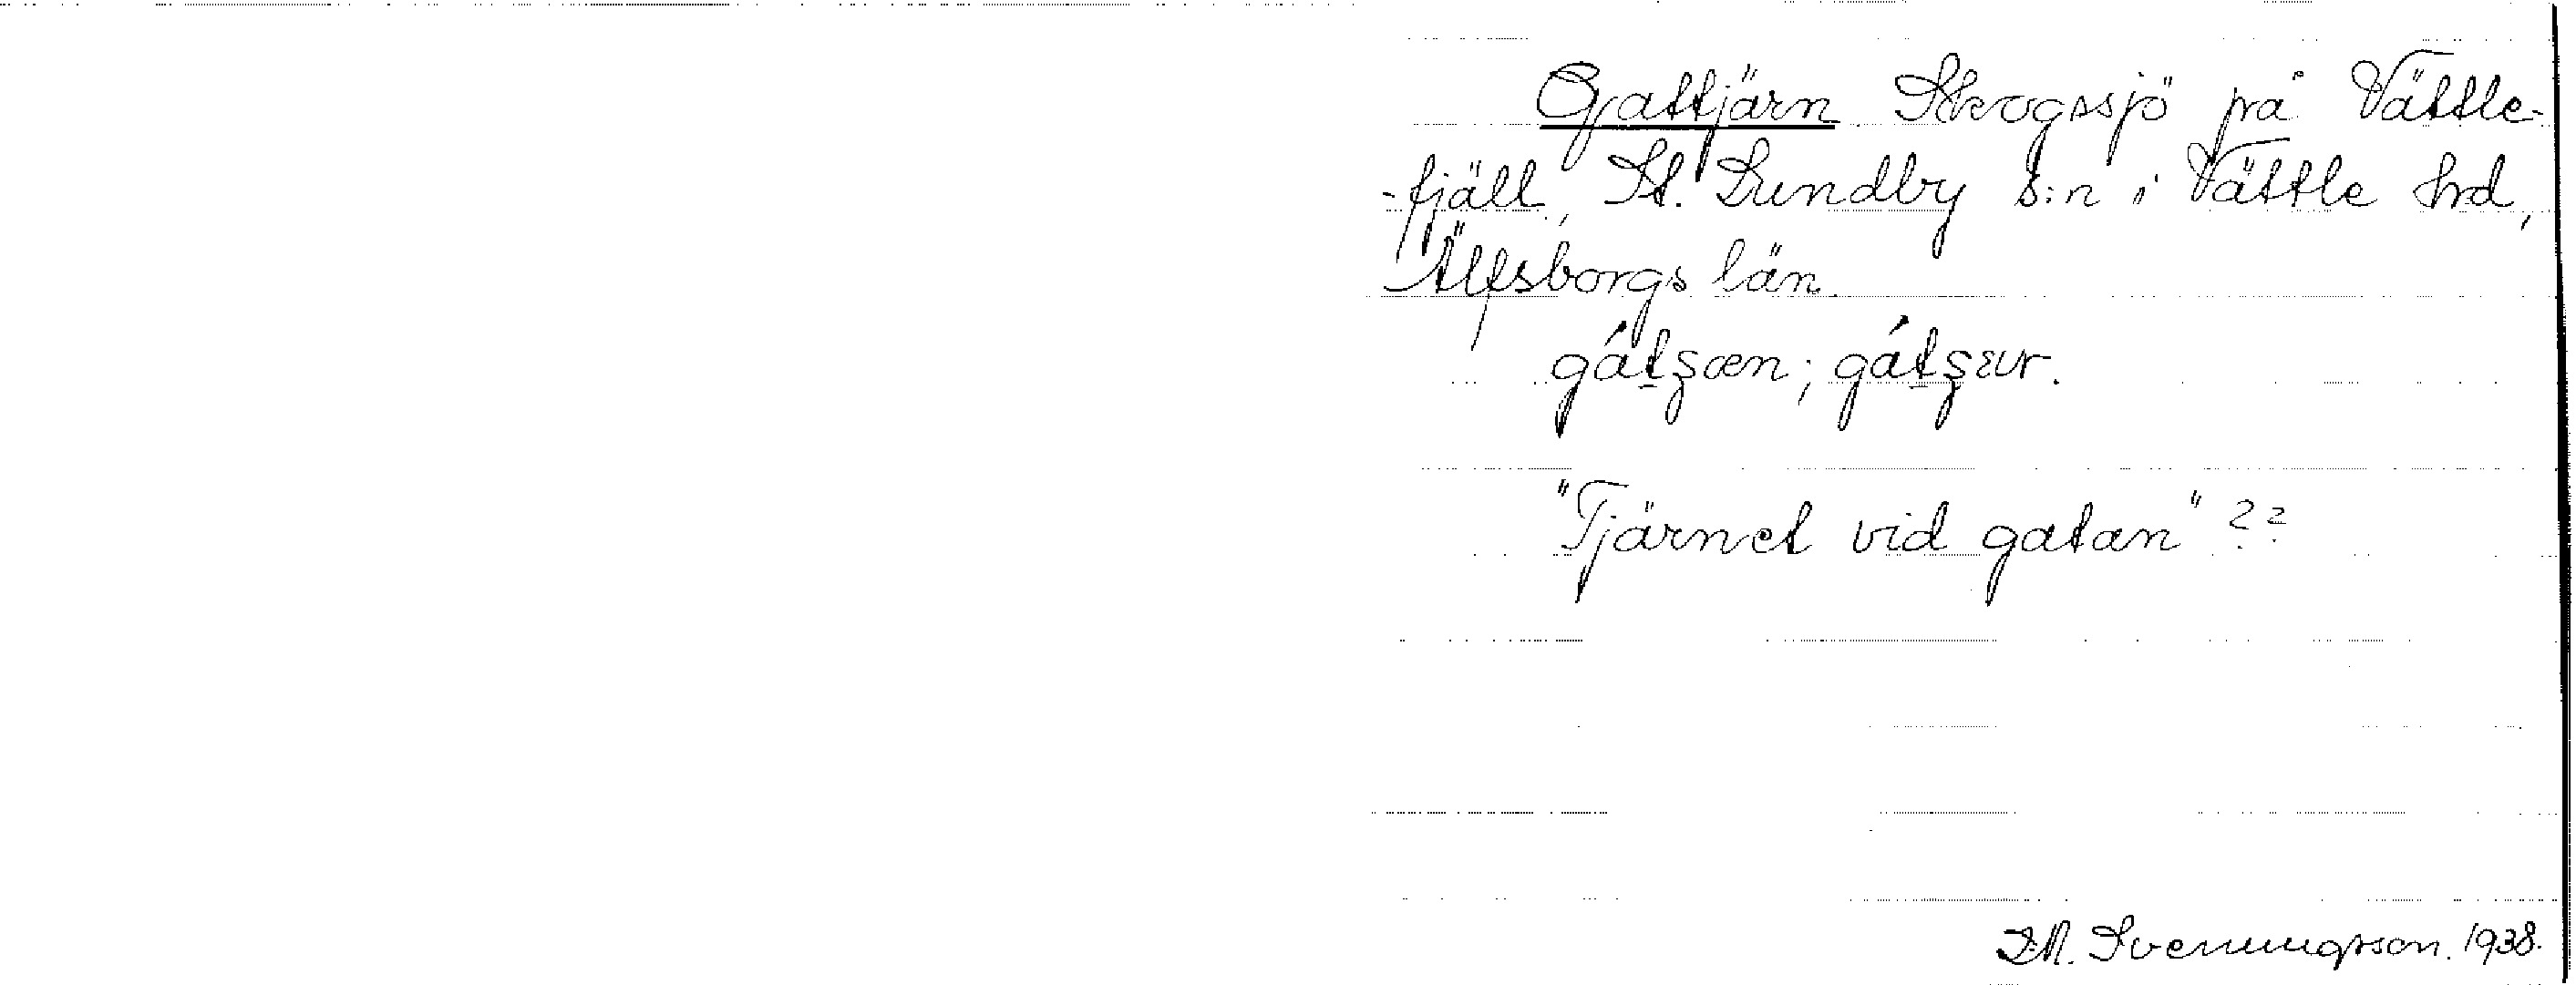 Gattjärn. Skogssjö på Vättle-
-fjäll, St. Lundby s:n i Vättle hrd,
Älfsborgs län.
"Tjärnet vid gatan"??
Svenningsson. 1938.